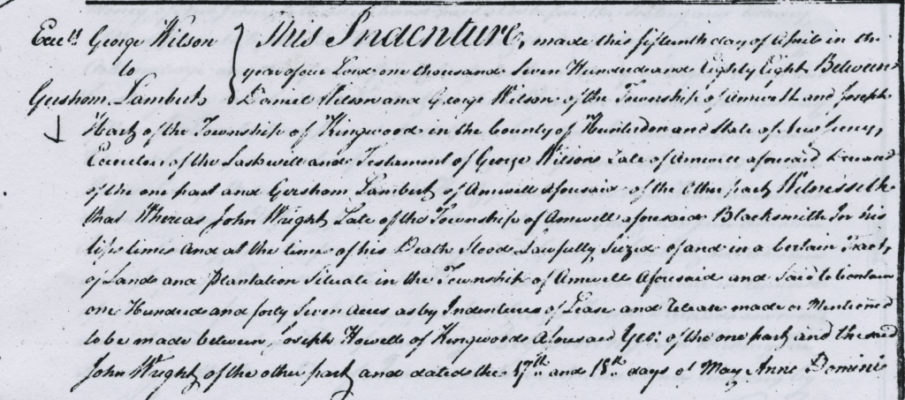 Exec.rs George Wilson to Gershom Lambert
This Indenture, made this fifteenth day of Aprile in the
year of our Lord one thousand Seven Hundred and Eighty Eight Between
Daniel Wilson and George Wilson of the Township of Amwell and Joseph
Hart of the Township of Kingwood in the County of Hunterdon and State of New Jersey
Executors of the Last will and Testament of George Wilson Late of Amwell aforesaid
of the one part and Gershom Lambert of Amwell aforesaid of the Other part Witnesseth
that Whereas John Wright Late of the Township of Amwell aforesaid Blacksmith In his
life time And at the time of his Death Stood Lawfully Seized of and in a Certain Tract
of Land and Plantation Situate in the Township of Amwell Aforesaid and Said to Contain
one Hundred and forty Seven Acres as by Indentures of Lease and Release made or Mentioned
to be made between Joseph Howell of Kingwood Aforesaid Yeo: of the one part and the said
John Wright of the other part and dated the 17th and 18th days of May Anno Domini